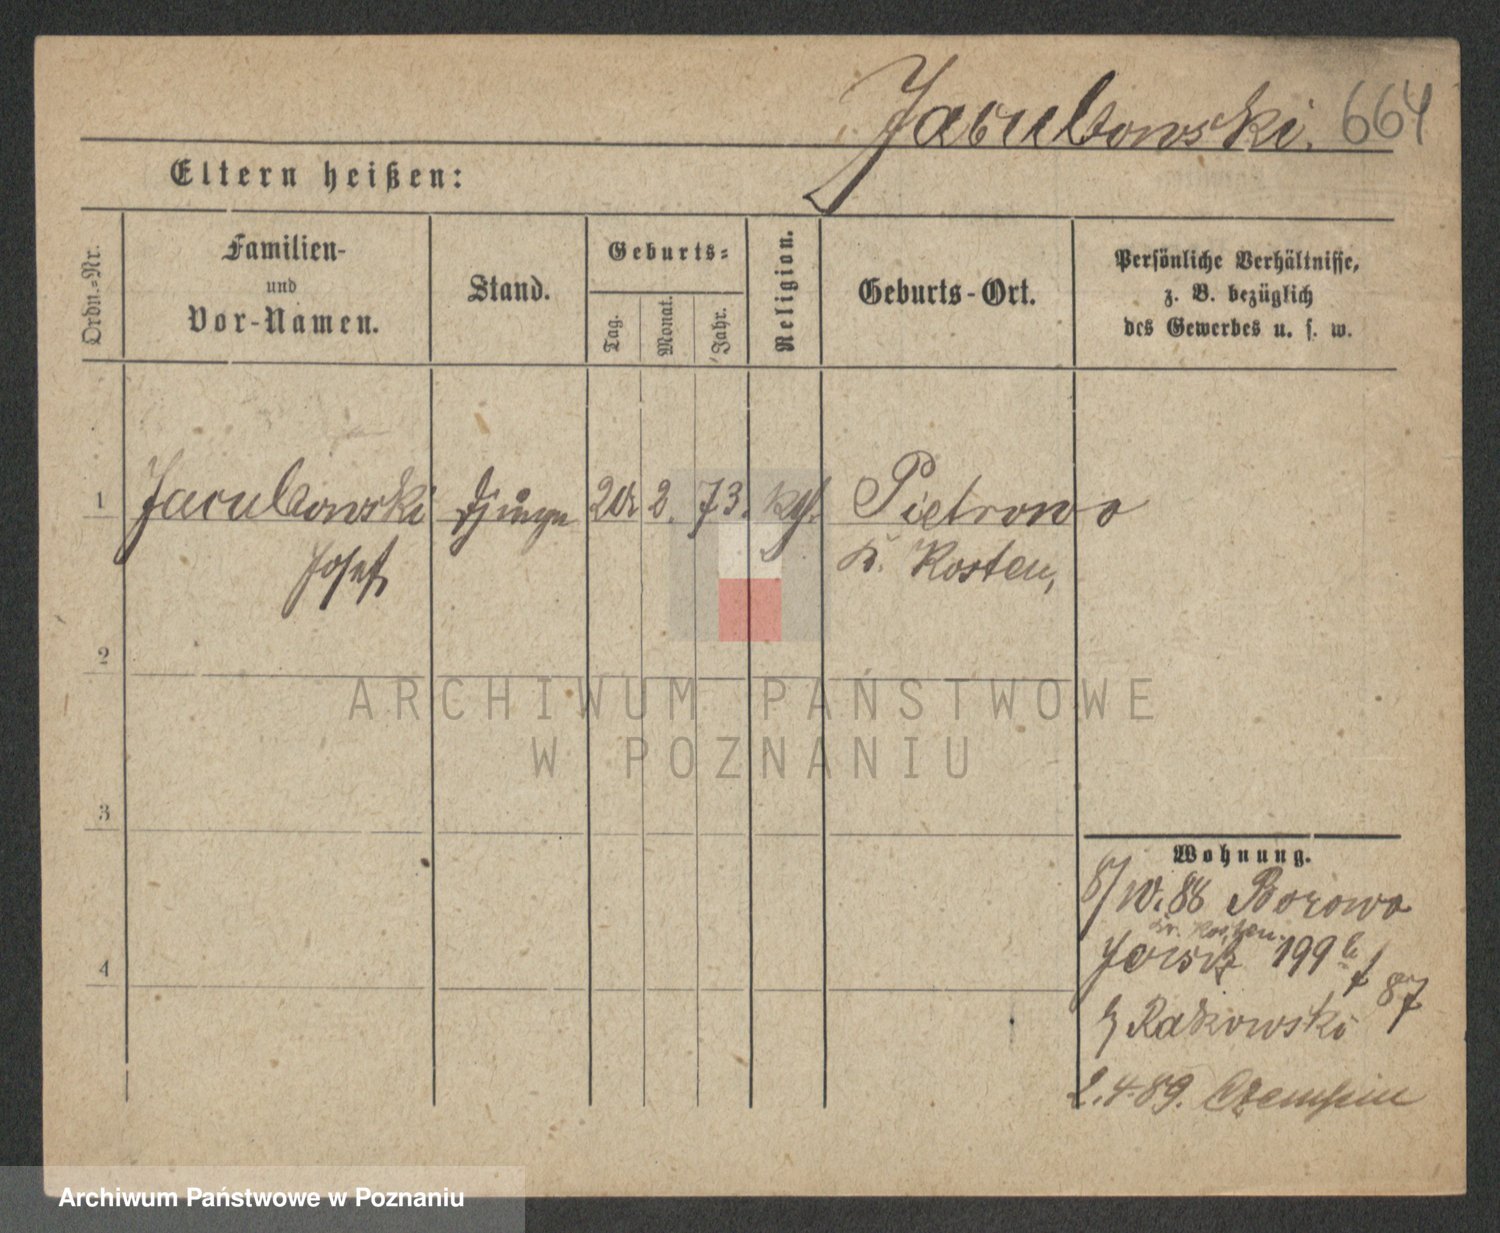 Jacubowski. 664
Eltern heißen:
Ordn.-Nr.
Familien-
und
Vor-Namen.
Stand.
Geburts-
Tag.
Monat.
Jahr.
Religion.
Geburts-Ort.
Persönliche Verhältnisse,
z. B. bezüglich
des Gewerbes u. s. w.
1 Jacubowski 2. 73. Pietrowo
Josef K. Kosten,
2
3
4
Wohnung.
88 Borowo
Kr. Kosten.
Jersitz 199
87
Rakowski
2.4.89. Czempin
ARCHIWUM PAŃSTWOWE
W POZNANIU
Archiwum Państwowe w Poznaniu